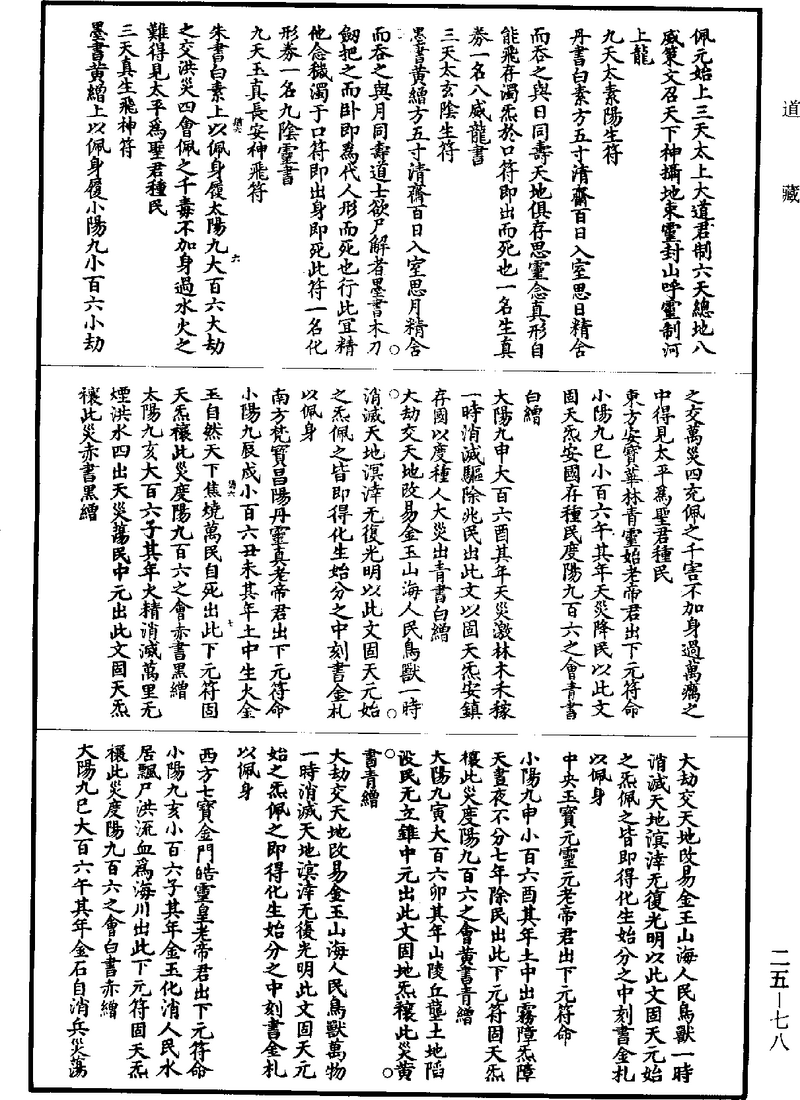 道藏
佩元始上三天太上大道君制六天總地八
威策文召天下神攝地東靈封山呼靈制河
上龍
九天太素陽生符
丹書白素方五寸清齋百日入室思日精含
而吞之與日同壽天地俱存思靈念真形自
能飛存濁炁於口符即出而死也一名生真
券一名八威龍書
三天太玄陰生符
墨書黃繒方五寸清齋百日入室思月精含
而吞之與月同壽道士欲尸解者墨書木刀
劒把之而卧即為代人形而死也行此宜精
他念穢濁于口符即出身即死此符一名化
形券一名九陰靈書
九天玉真長安神飛符
朱書白素上以佩身履太陽九大百六大劫
之交洪災四會佩之千毒不加身過水火之
難得見太平為聖君種民
三天真生飛神符
墨書黃繒上以佩身履小陽九小百六小劫
之交萬災四充佩之千害不加身過萬癘之
中得見太平為聖君種民
東方安寶華林青靈始老帝君出下元符命
小陽九巳小百六午其年天災降民以此文
固天炁安國存種民度陽九百六之會青書
白繒
大陽九申大百六酉其年天災激林木禾稼
一時消滅驅除兆民出此文以固天炁安鎮
存國以度種人大災出青書白繒
大劫交天地改易金玉山海人民鳥獸一時
消滅天地溟涬无復光明以此文固天元始
之炁佩之皆即得化生始分之中刻書金札
以佩身
南方梵寶昌陽丹靈真老帝君出下元符命
小陽九辰戌小百六丑未其年土中生火金
玉自然天下焦燒萬民自死出此下元符固
天炁禳此災度陽九百六之會赤書黑繒
太陽九亥大百六子其年火精消滅萬里无
煙洪水四出天災蕩民中元出此文固天炁
禳此災赤書黑繒
大劫交天地改易金玉山海人民鳥獸一時
消滅天地溟涬无復光明以此文固天元始
之炁佩之皆即得化生始分之中刻書金札
以佩身
中央玉寶元靈元老帝君出下元符命
小陽九申小百六酉其年土中出霧障炁障
天晝夜不分七年除民出此下元符固天炁
禳此災度陽九百六之會黃書青繒
大陽九寅大百六卯其年山陵丘壟土地陷
沒民无立錐中元出此文固地炁禳此災黃
書青繒
大劫交天地改易金玉山海人民鳥獸萬物
一時消滅天地溟涬无復光明此文固天元
始之炁佩之即得化生始分之中刻書金札
以佩身
西方七寶金門皓靈皇老帝君出下元符命
小陽九亥小百六子其年金玉化消人民水
居飄尸洪流血為海川出此下元符固天炁
禳此災度陽九百六之會白書赤繒
大陽九巳大百六午其年金石自消兵災蕩
二五—七八